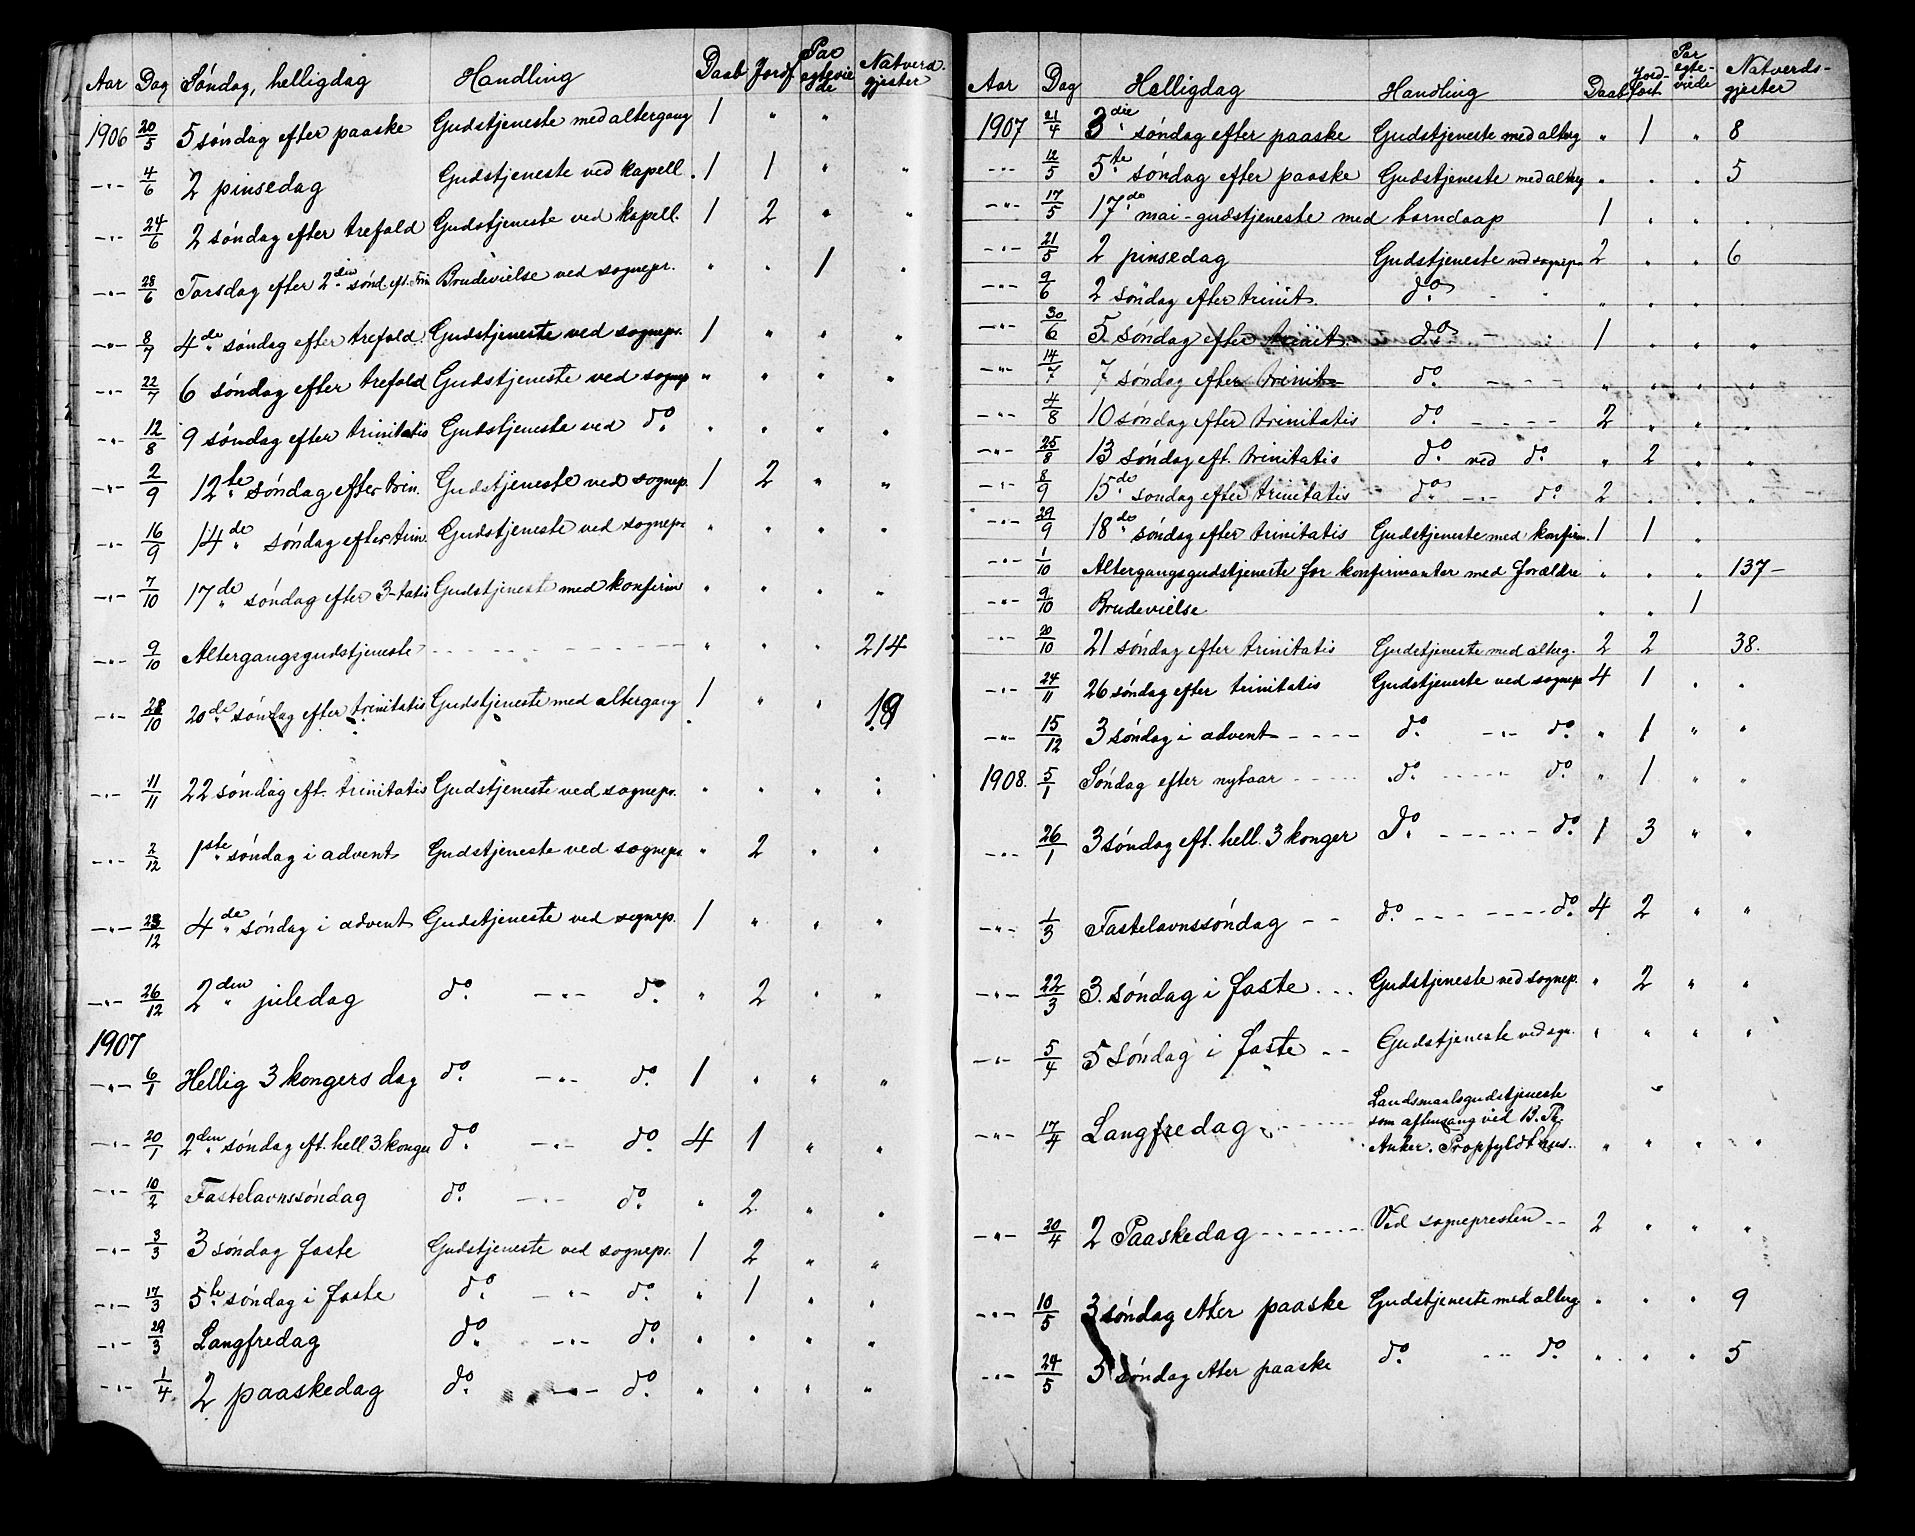 Aar Dag Søndag, helligdag Handling Daab Jordf. Par ægtevie de Natverd. gjester
1906 20/5 5 søndag efter paaske Gudstjeneste med altergang 1 " "
-"- 4/6 2 pinsedag Gudstjeneste ved kapell. 1 1 " "
-"- 24/6 2 søndag efter trefold Gudstjeneste ved kapell. 1 2 " "
-"- 28/6 Torsdag efter 2den sønd. eft. Trin Brudevielse ved sognepr. " " 1 "
-"- 8/7 4de søndag efter trefold. Gudstjeneste ved sognepr. 1 " " "
-"- 22/7 6 søndag efter trefold Gudstjeneste ved sognep " " " "
-"- 12/8 9 søndag efter trinitatis Gudstjeneste ved do. " " " "
-"- 2/9 12te søndag efter trin. Gudstjeneste ved sognep. 1 2 " "
-"- 16/9 14de søndag efter trin. Gudstjeneste ved sognepr " " " "
-"- 7/10 17de søndag efter 3-tatis Gudstjenest med konfirm " " " "
-"- 9/10 Altergangsgudstjeneste - - - - " " " 214
-"- 28/10 20de søndag efter trinitatis Gudstjeneste med altergang 1 " " 19
-"- 11/11 22 søndag eft. trinitatis Gudstjeneste ved sognepr. " " " "
-"- 2/12 1ste søndag i advent Gudstjeneste ved sognepr. " 2 " "
-"- 23/12 4de søndag i advent Gudstjeneste ved sognep. 1 " " "
-"- 26/12 2den juledag do. -"- do. " 2 " "
1907
-"- 6/1 Hellig 3 kongers dag do. -"- do. 1 " " "
-"- 20/1 2den søndag eft. hell. 3. konger do. -"- do. 4 1 " "
-"- 10/2 Fastelavnssøndag do. -"- do. " 2 " "
-"- 3/3 3 søndag faste Gudstjeneste ved sognepr. 1 2 " "
-"- 17/3 5te søndag i faste do. -"- do. " 1 " "
-"- 29/3 Langfredag do. -"- do. " " " "
-"- 1/4 2 paaskedag do. -"- do. " " " "
Aar Dag Helligdag Handling Daab Jord-fæst. Par egte-viede Natverds-gjester
1907 21/4 3die søndag efter paaske Gudstjeneste med alterg " 1 " 8
-"- 12/5 5te søndag efter paaske Gudstjeneste med alterg " " " 5
-"- 17/5 17de mai - gudstjeneste med barndaap 1 " " "
-"- 21/5 2 pinsedag Gudstjeneste ved sognepr 2 " " 6
-"- 9/6 2 søndag efter trinit. do. - " " " " "
-"- 30/6 5 søndag efter trinit. do. - " 1 " " "
-"- 14/7 7 søndag efter trinit. do. - - - - " " " "
-"- 4/8 10 søndag efter trinitatis do. - - - - 2 " " "
-"- 25/8 13 søndag eft. trinitatis do. ved do. " 2 " "
-"- 8/9 15de søndag efter trinitatis do. -"- do. 2 " " "
-"- 29/9 18de søndag efter trinitatis Gudstjeneste med konfirm. 1 1 "
-"- 1/10 Altergangsgudstjeneste for konfirmanter med forældre " " " 137 -
-"- 9/10 Brudevielse " " 1
-"- 20/10 21 søndag efter trinitatis Gudstjeneste med alterg. 2 2 38.
-"- 24/11 26 søndag efter trinitatis Gudstjeneste ved sognep 4 1 " "
-"- 15/12 3 søndag i advent - - - - do. -"- do. " 1 " "
1908. 5/1 Søndag efter nytaar - - - - do. - - - - do. " 1 " "
-"- 26/1 3 søndag eft. hell. 3 konger do. - - - - do. 1 3 " "
-"- 1/3 Fastelavnssøndag - - do. - - - - - - do. 4 2 " "
-"- 22/3 3. søndag i faste. . . Gudstjeneste ved sognep. " 2 " "
-"- 5/4 5 søndag i faste - - Gudstjeneste ved sgn. " " " "
-"- 17/4 Langfredag - - - - - Landsmaalsgudstjeneste
som aftensang ved B. Th.
Anker. Propfyldt hus. " " " "
-"- 20/4 2 Paaskedag - - - - - Ved sognepresten - - 2 " " "
-"- 10/5 3 søndag etter paaske Gudstjeneste med alterg " " " 9
-"- 24/5 5 søndag etter paaske do. -"- do. " " " 5